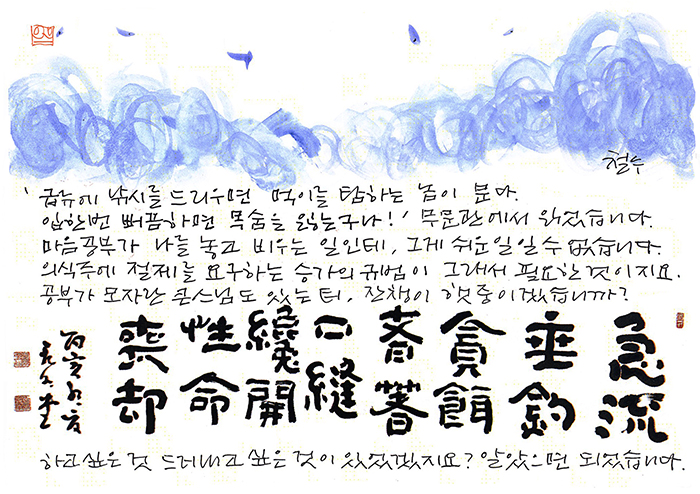 철수
'급류에 낚시를 드리우면 먹이를 탐하는 놈이 문다.
입 한번 뻐끔하면 목숨을 잃는구나!' 무문관에서 읽었습니다.
마음공부가 나를 놓고 비우는 일인데, 그게 쉬운일일 수 없습니다.
의식주에 절제를 요구하는 승가의 규범이 그래서 필요한 것이지요.
공부가 모자란 큰스님도 있는 터, 잔챙이 헛중이겠습니까?
急流
垂釣
貪餌
者著
口縫
纔開
性命
喪却
하고 싶은 것 드러내고 싶은 것이 있었겠지요? 알았으면 되었습니다.